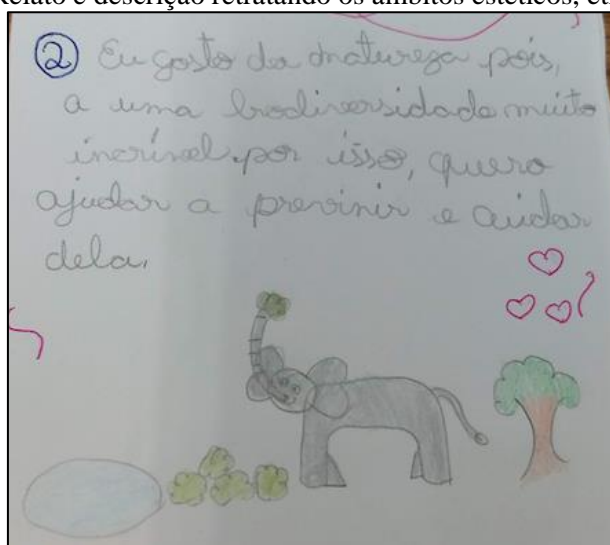 Relato e descrição retratando os âmbitos estéticos,
② Eu gosto da natureza pois,
a uma biodiversidade muito
incrível, por isso, quero
ajudar a previnir e cuidar
dela.